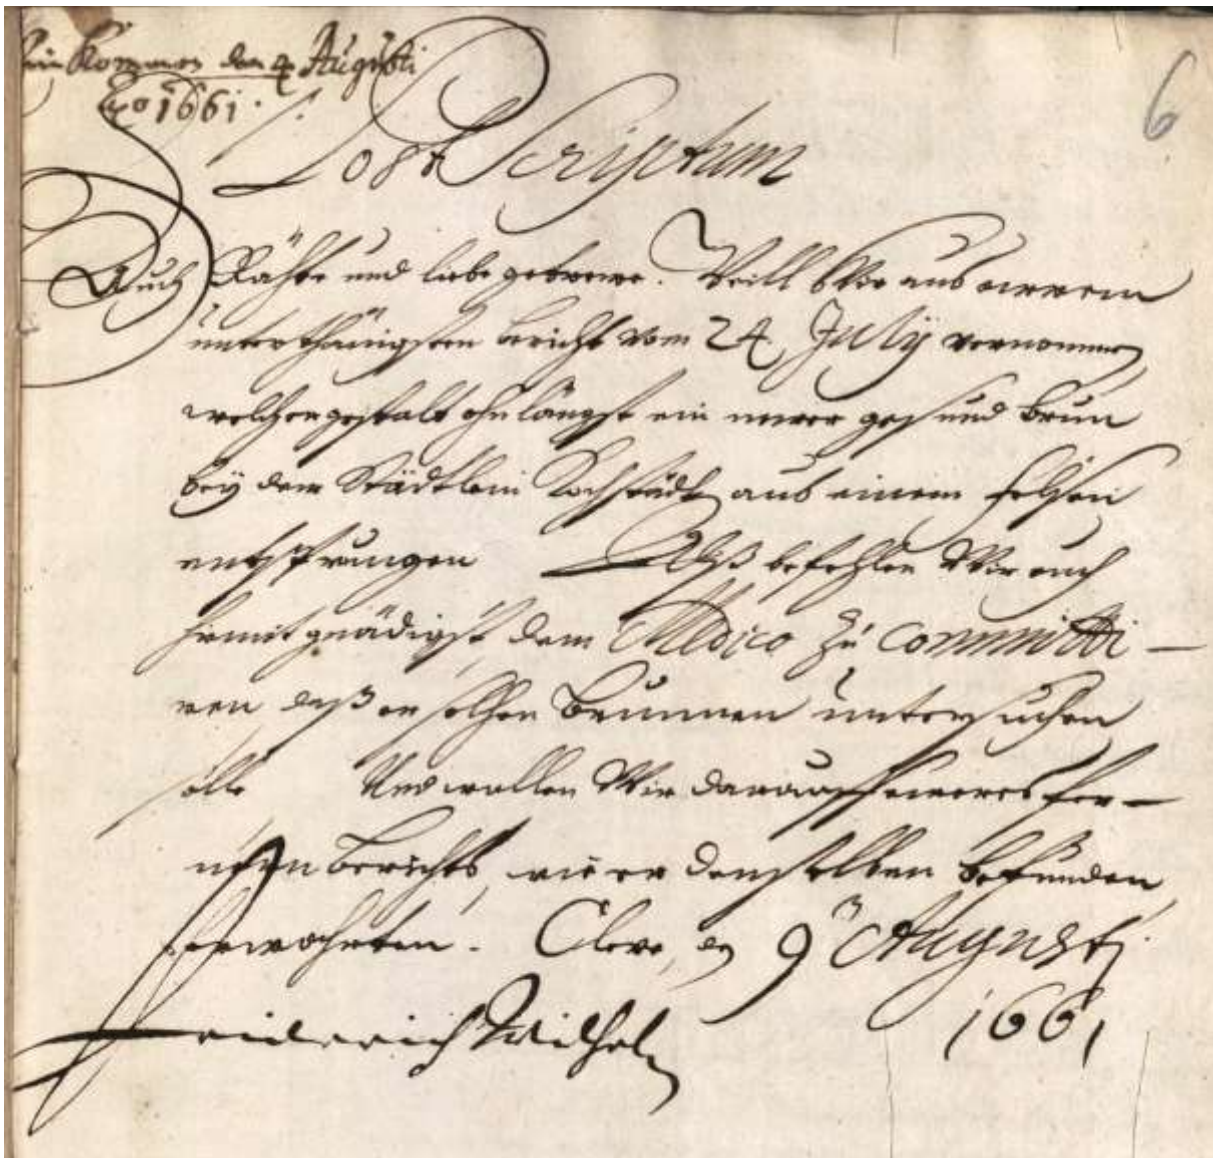 Einkommen den 4 Augusti
Ao 1661.
6
Post Scriptum
Auch Rähte und liebe getrewe. Weill Wir aus ewrem
unterthänigsten bericht vom 24 July vernommen
welchergestalt ohnlängst ein newer gesund brun
bey dem Städtlein Kochstädt aus einem felsen
entsprungen Alß befehlen Wir euch
hiemit gnädigst dem Medico zu committi-
ren, daß er solchen Brunnen untersuchen
solle Und wollen Wir darauff eweres fer-
nern berichts, wie er denselben befunden
erwahrten. Cleve, den 9 Augusti
1661
Friderich Wilhelm